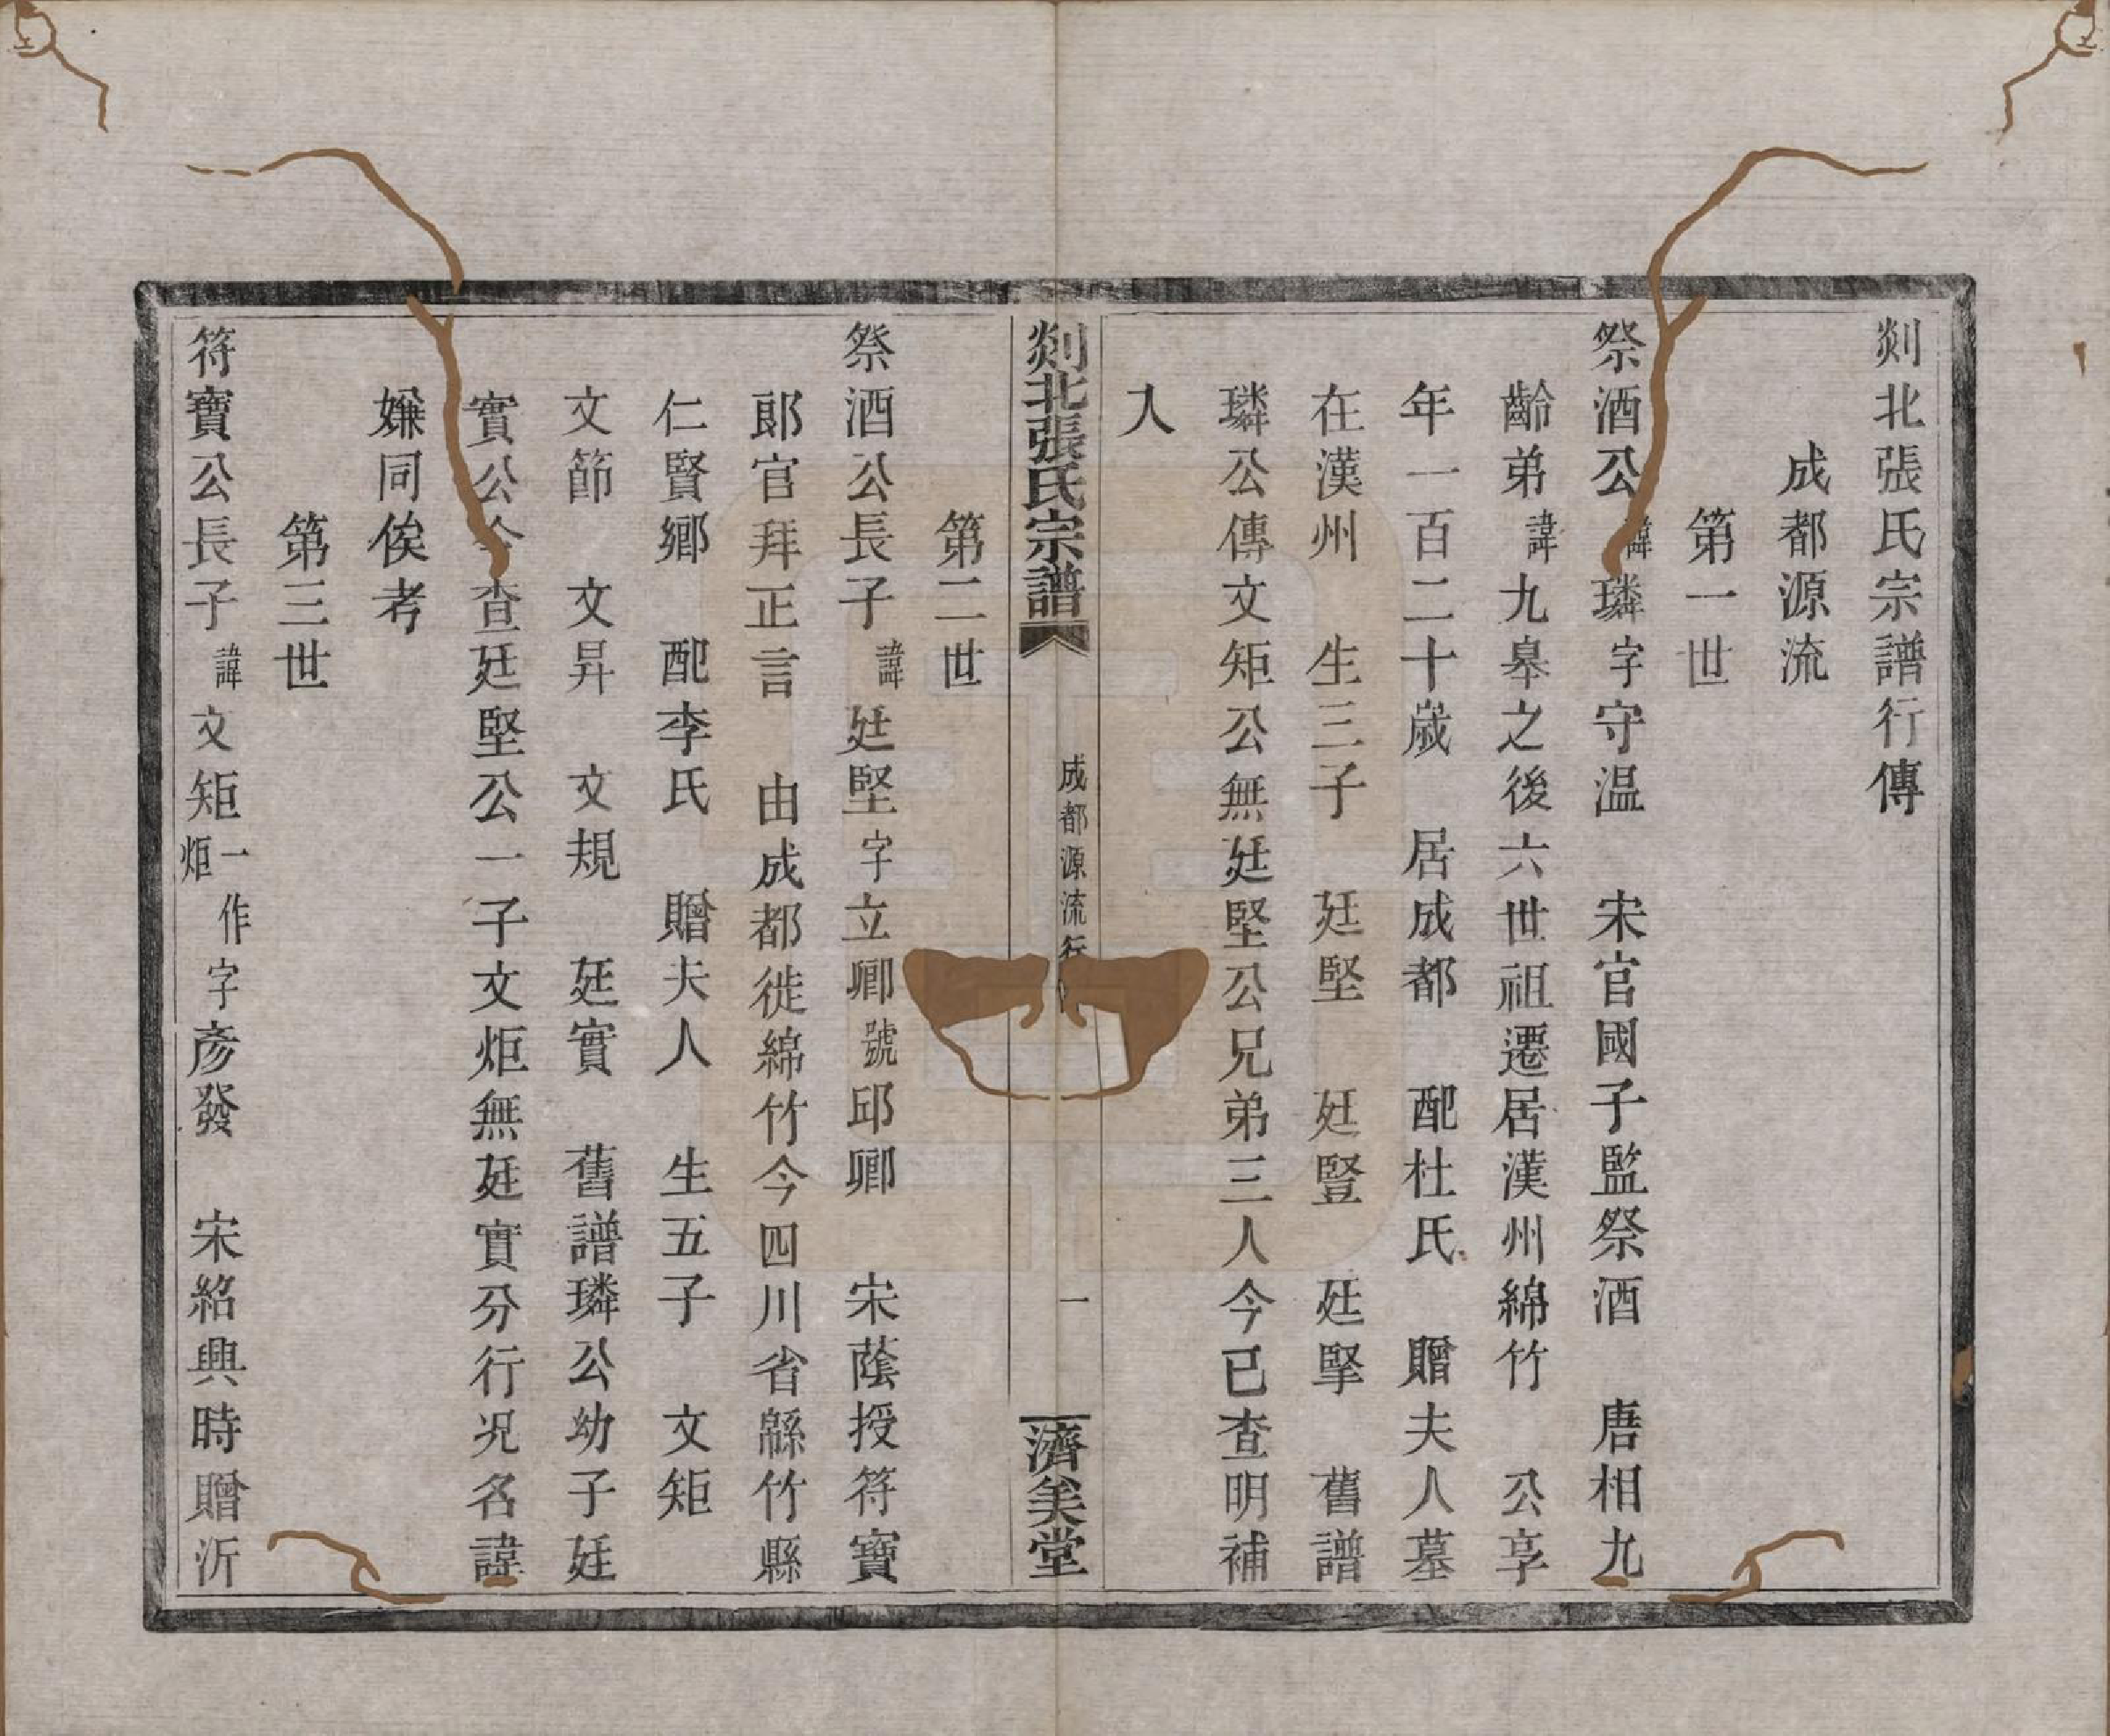 剡北張氏宗譜行傳
成都源流
第一世
祭酒公諱璘字守温　宋官國子監祭酒　唐相九
齡弟諱九皋之後六世祖遷居漢州綿竹　公享
年一百二十歲　居成都　配杜氏　贈夫人墓
在漢州　生三子　廷堅　廷豎　廷掔　舊譜
璘公傳文矩公無廷堅公兄弟三人今已查明補
入
剡北張氏宗譜
成都源流行
一
濟美堂
第二世
祭酒公長子諱廷堅字立卿號邱卿　宋蔭授符寶
郎官拜正言　由成都徙綿竹今四川省緜竹縣
仁賢鄉　配李氏　贈夫人　生五子　文矩
文節　文昇　文規　廷實　舊譜璘公幼子廷
實公今查廷堅公一子文炬無廷實分行况名諱
嫌同俟考
第三世
符寶公長子諱文矩一作炬字彥發　宋紹興時贈沂